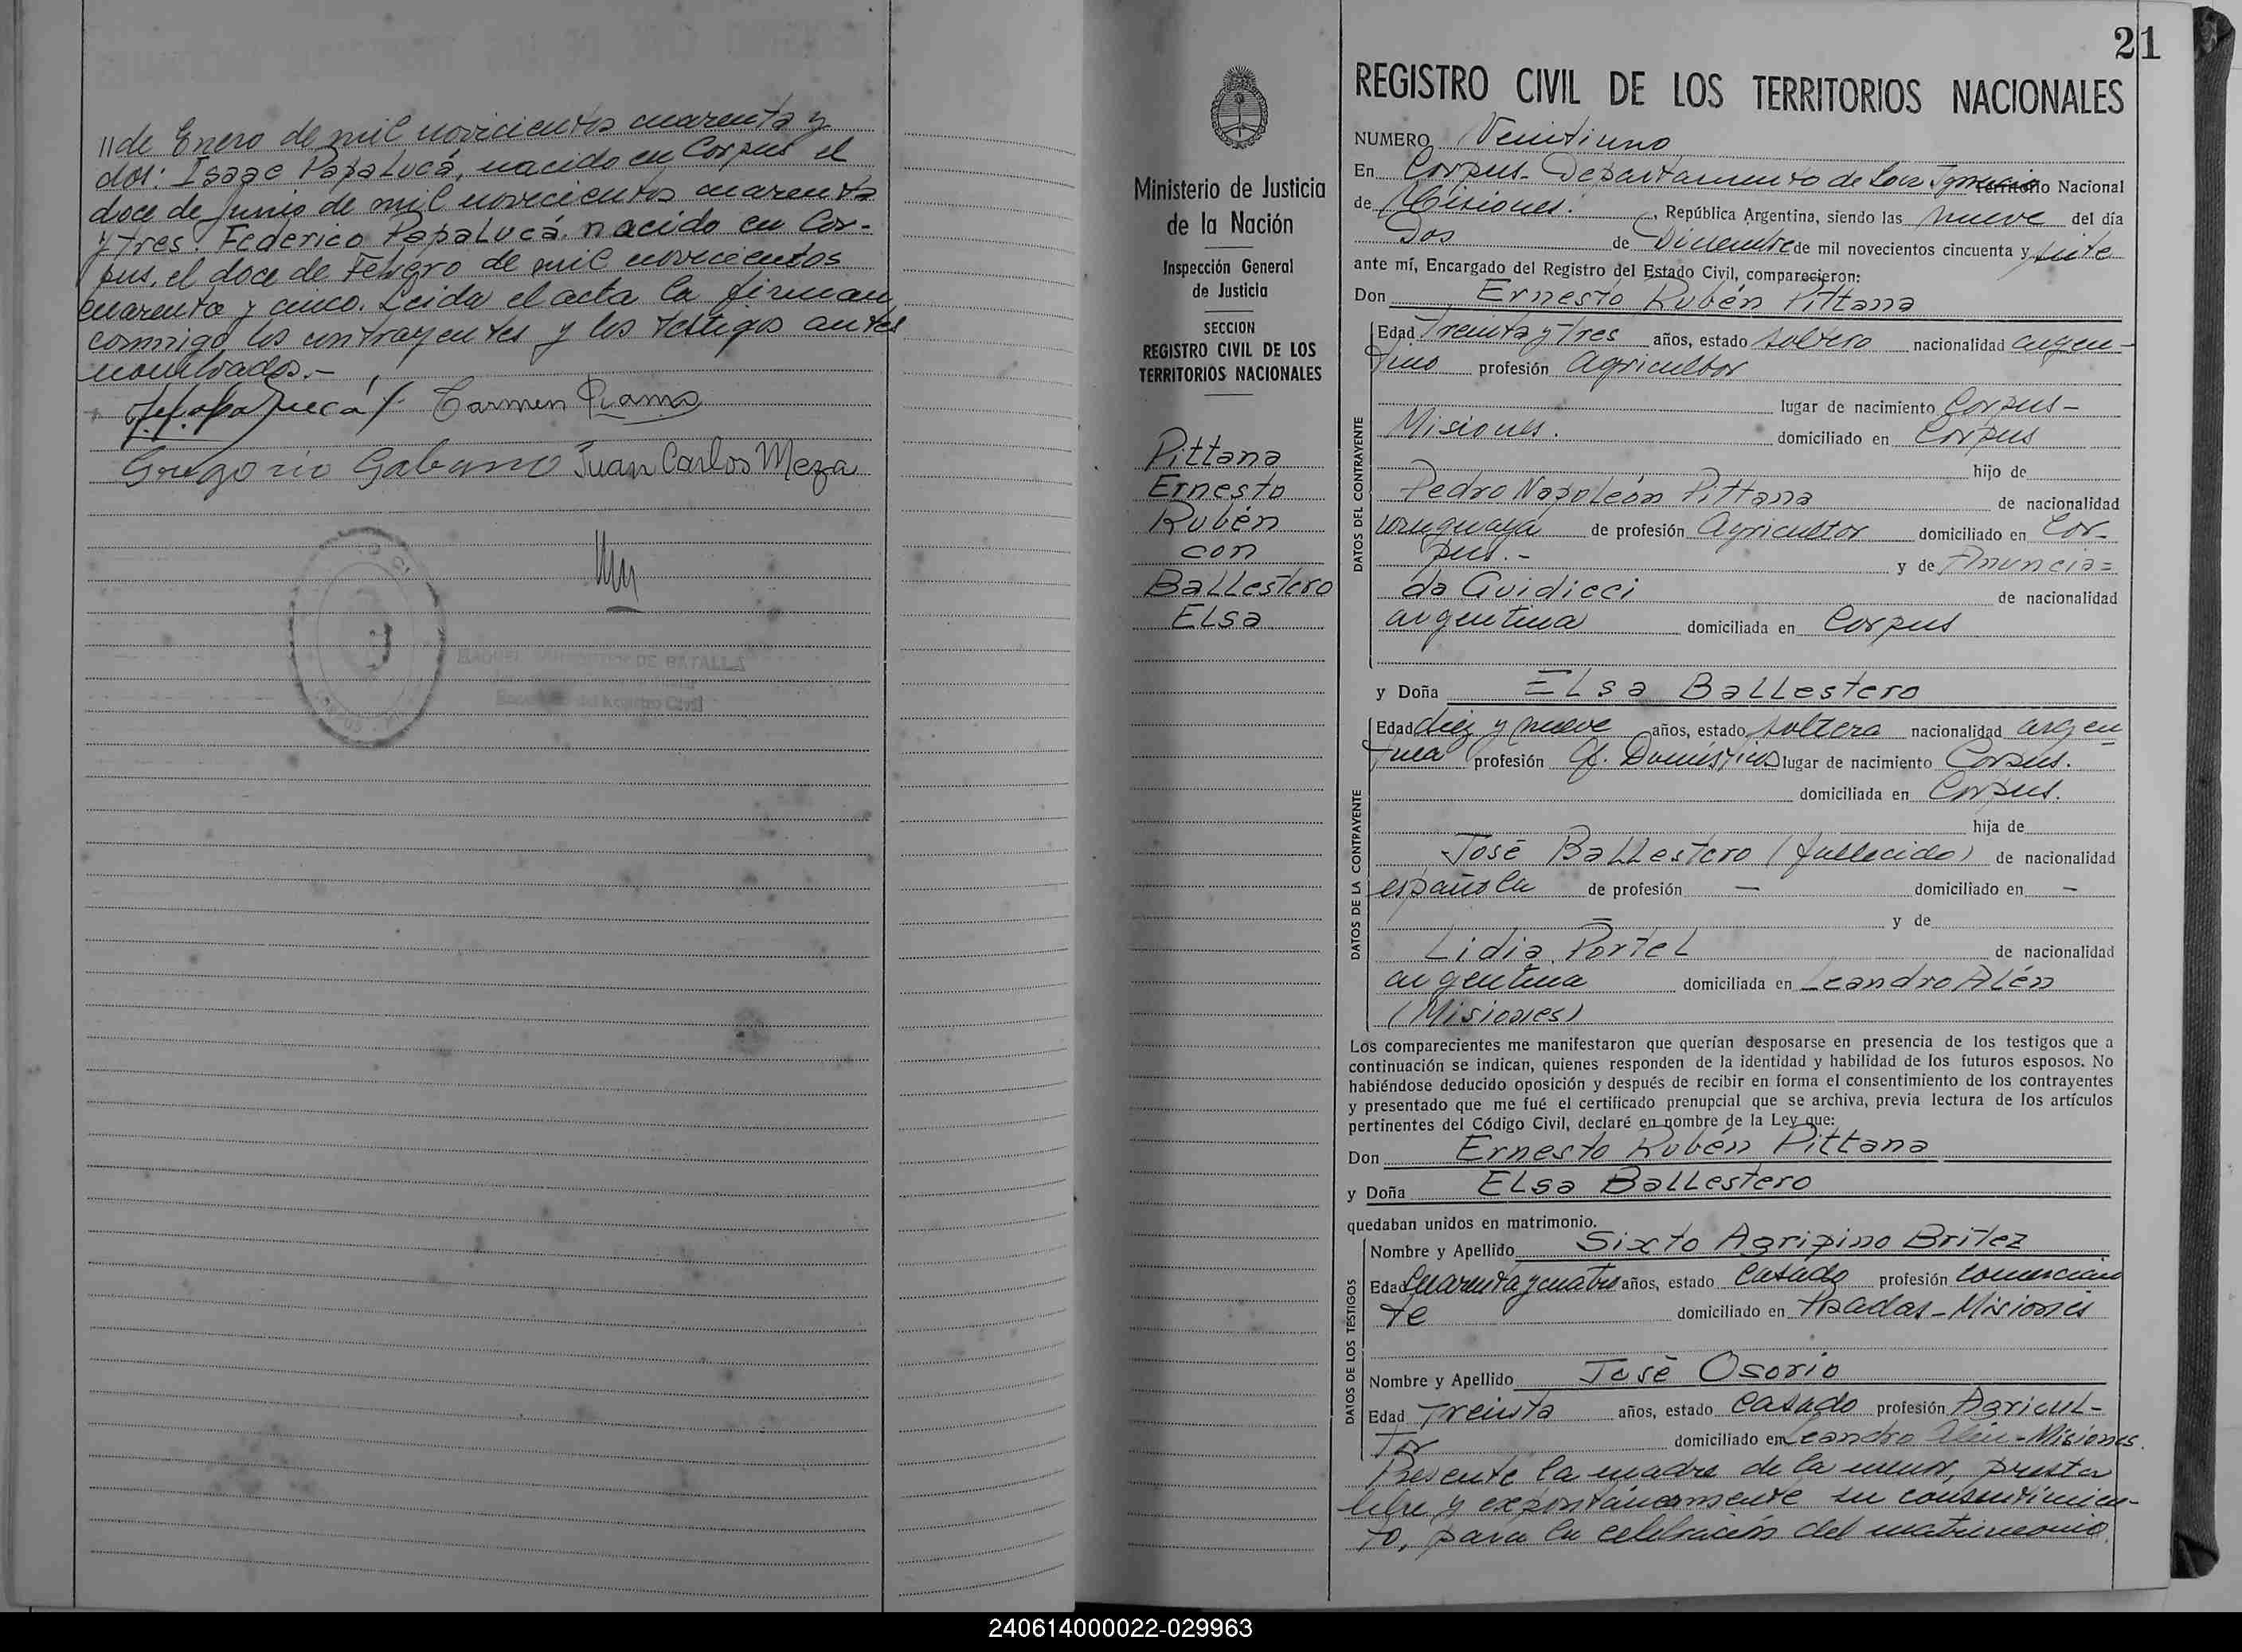 // de Enero de mil novecientos cuarenta y
dos: Isaac Papalucá, nacido en Corpus el
doce de Junio de mil novecientos cuarenta
y tres. Federico Papalucá, nacido en Cor-
pus, el doce de Febrero de mil novecientos
cuarenta y cinco. Leida el acta la firman
conmigo los contrayentes y los testigos antes
nombrados.-
Carmen Ramos
Gregorio Gabano Juan Carlos Meza
DE BATALLA
del Registro Civil
Ministerio de Justicia
de la Nación
Inspección General
de Justicia
SECCION
REGISTRO CIVIL DE LOS
TERRITORIOS NACIONALES
Pittana
Ernesto
Rubén
con
Ballestero
Elsa
21
REGISTRO CIVIL DE LOS TERRITORIOS NACIONALES
NUMERO Veintiuno
En Corpus - Departamento de San Ignacio Territorio Nacional
de Misiones. , República Argentina, siendo las nueve del día
Dos de Diciembre de mil novecientos cincuenta y siete
ante mí, Encargado del Registro del Estado Civil, comparecieron:
Don Ernesto Rubén Pittana
DATOS DEL CONTRAYENTE
Edad Treinta y Tres años, estado soltero nacionalidad argen-
tino profesión Agricultor
lugar de nacimiento Corpus -
Misiones. domiciliado en Corpus
hijo de
Pedro Napoleón Pittana de nacionalidad
uruguaya de profesión Agricultor domiciliado en Cor-
pus.- y de Anuncia=
da Guidicci de nacionalidad
argentina domiciliada en Corpus
y Doña Elsa Ballestero
DATOS DE LA CONTRAYENTE
Edad diez y nueve años, estado soltera nacionalidad argen
tina profesión Q. Domésticos lugar de nacimiento Corpus.
domiciliada en Corpus.
hija de
José Ballestero (fallecido) de nacionalidad
española de profesión — domiciliado en —
y de
Lidia Portel de nacionalidad
argentina domiciliada en Leandro Alén
(Misiones)
Los comparecientes me manifestaron que querían desposarse en presencia de los testigos que a
continuación se indican, quienes responden de la identidad y habilidad de los futuros esposos. No
habiéndose deducido oposición y después de recibir en forma el consentimiento de los contrayentes
y presentado que me fué el certificado prenupcial que se archiva, previa lectura de los artículos
pertinentes del Código Civil, declaré en nombre de la Ley que:
Don Ernesto Rubén Pittana
y Doña Elsa Ballestero
quedaban unidos en matrimonio.
DATOS DE LOS TESTIGOS
Nombre y Apellido Sixto Agripino Britez
Edad Cuarenta y cuatro años, estado Casado profesión comercian
te domiciliado en Posadas - Misiones
Nombre y Apellido José Osorio
Edad Treinta años, estado Casado profesión Agricul-
tor domiciliado en Leandro Alén - Misiones.
Presente la madre de la menor, presta
libre y expontáneamente su consentimien-
to, para la celebración del matrimonio.
240614000022-029963